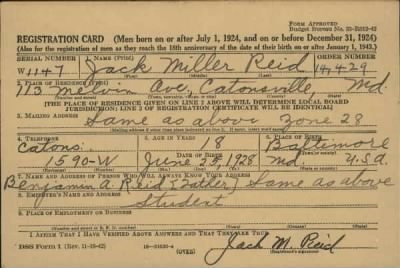 FORM APPROVED
REGISTRATION CARD (Men born on or after July 1, 1924, and on or before December 31, 1924)
(Also for the registration of men as they reach the 18th anniversary of the date of their birth on or after January 1, 1943.)
SERIAL NUMBER 1. NAME (Print) ORDER NUMBER
W 1147 Jack Miller Reid 14,429
2. PLACE OF RESIDENCE (Print)
113 Melvin Ave, Catonsville, Md.
[THE PLACE OF RESIDENCE GIVEN ON LINE 2 ABOVE WILL DETERMINE LOCAL BOARD
JURISDICTION; LINE 2 OF REGISTRATION CERTIFICATE WILL BE IDENTICAL]
3. MAILING ADDRESS
Same as above Zone 28
4. TELEPHONE 5. AGE IN YEARS 6. PLACE OF BIRTH
Catons. 18 Baltimore
DATE OF BIRTH
1590-W June 25, 1928 Md. U.S.A.
7. NAME AND ADDRESS OF PERSON WHO WILL ALWAYS KNOW YOUR ADDRESS
Benjamin A. Reid (Father) Same as above
8. EMPLOYER'S NAME AND ADDRESS
Student
9. PLACE OF EMPLOYMENT OR BUSINESS
I AFFIRM THAT I HAVE VERIFIED ABOVE ANSWERS AND THAT THEY ARE TRUE.
DSS Form 1 (Rev. 11-16-42) (OVER) Jack M. Reid